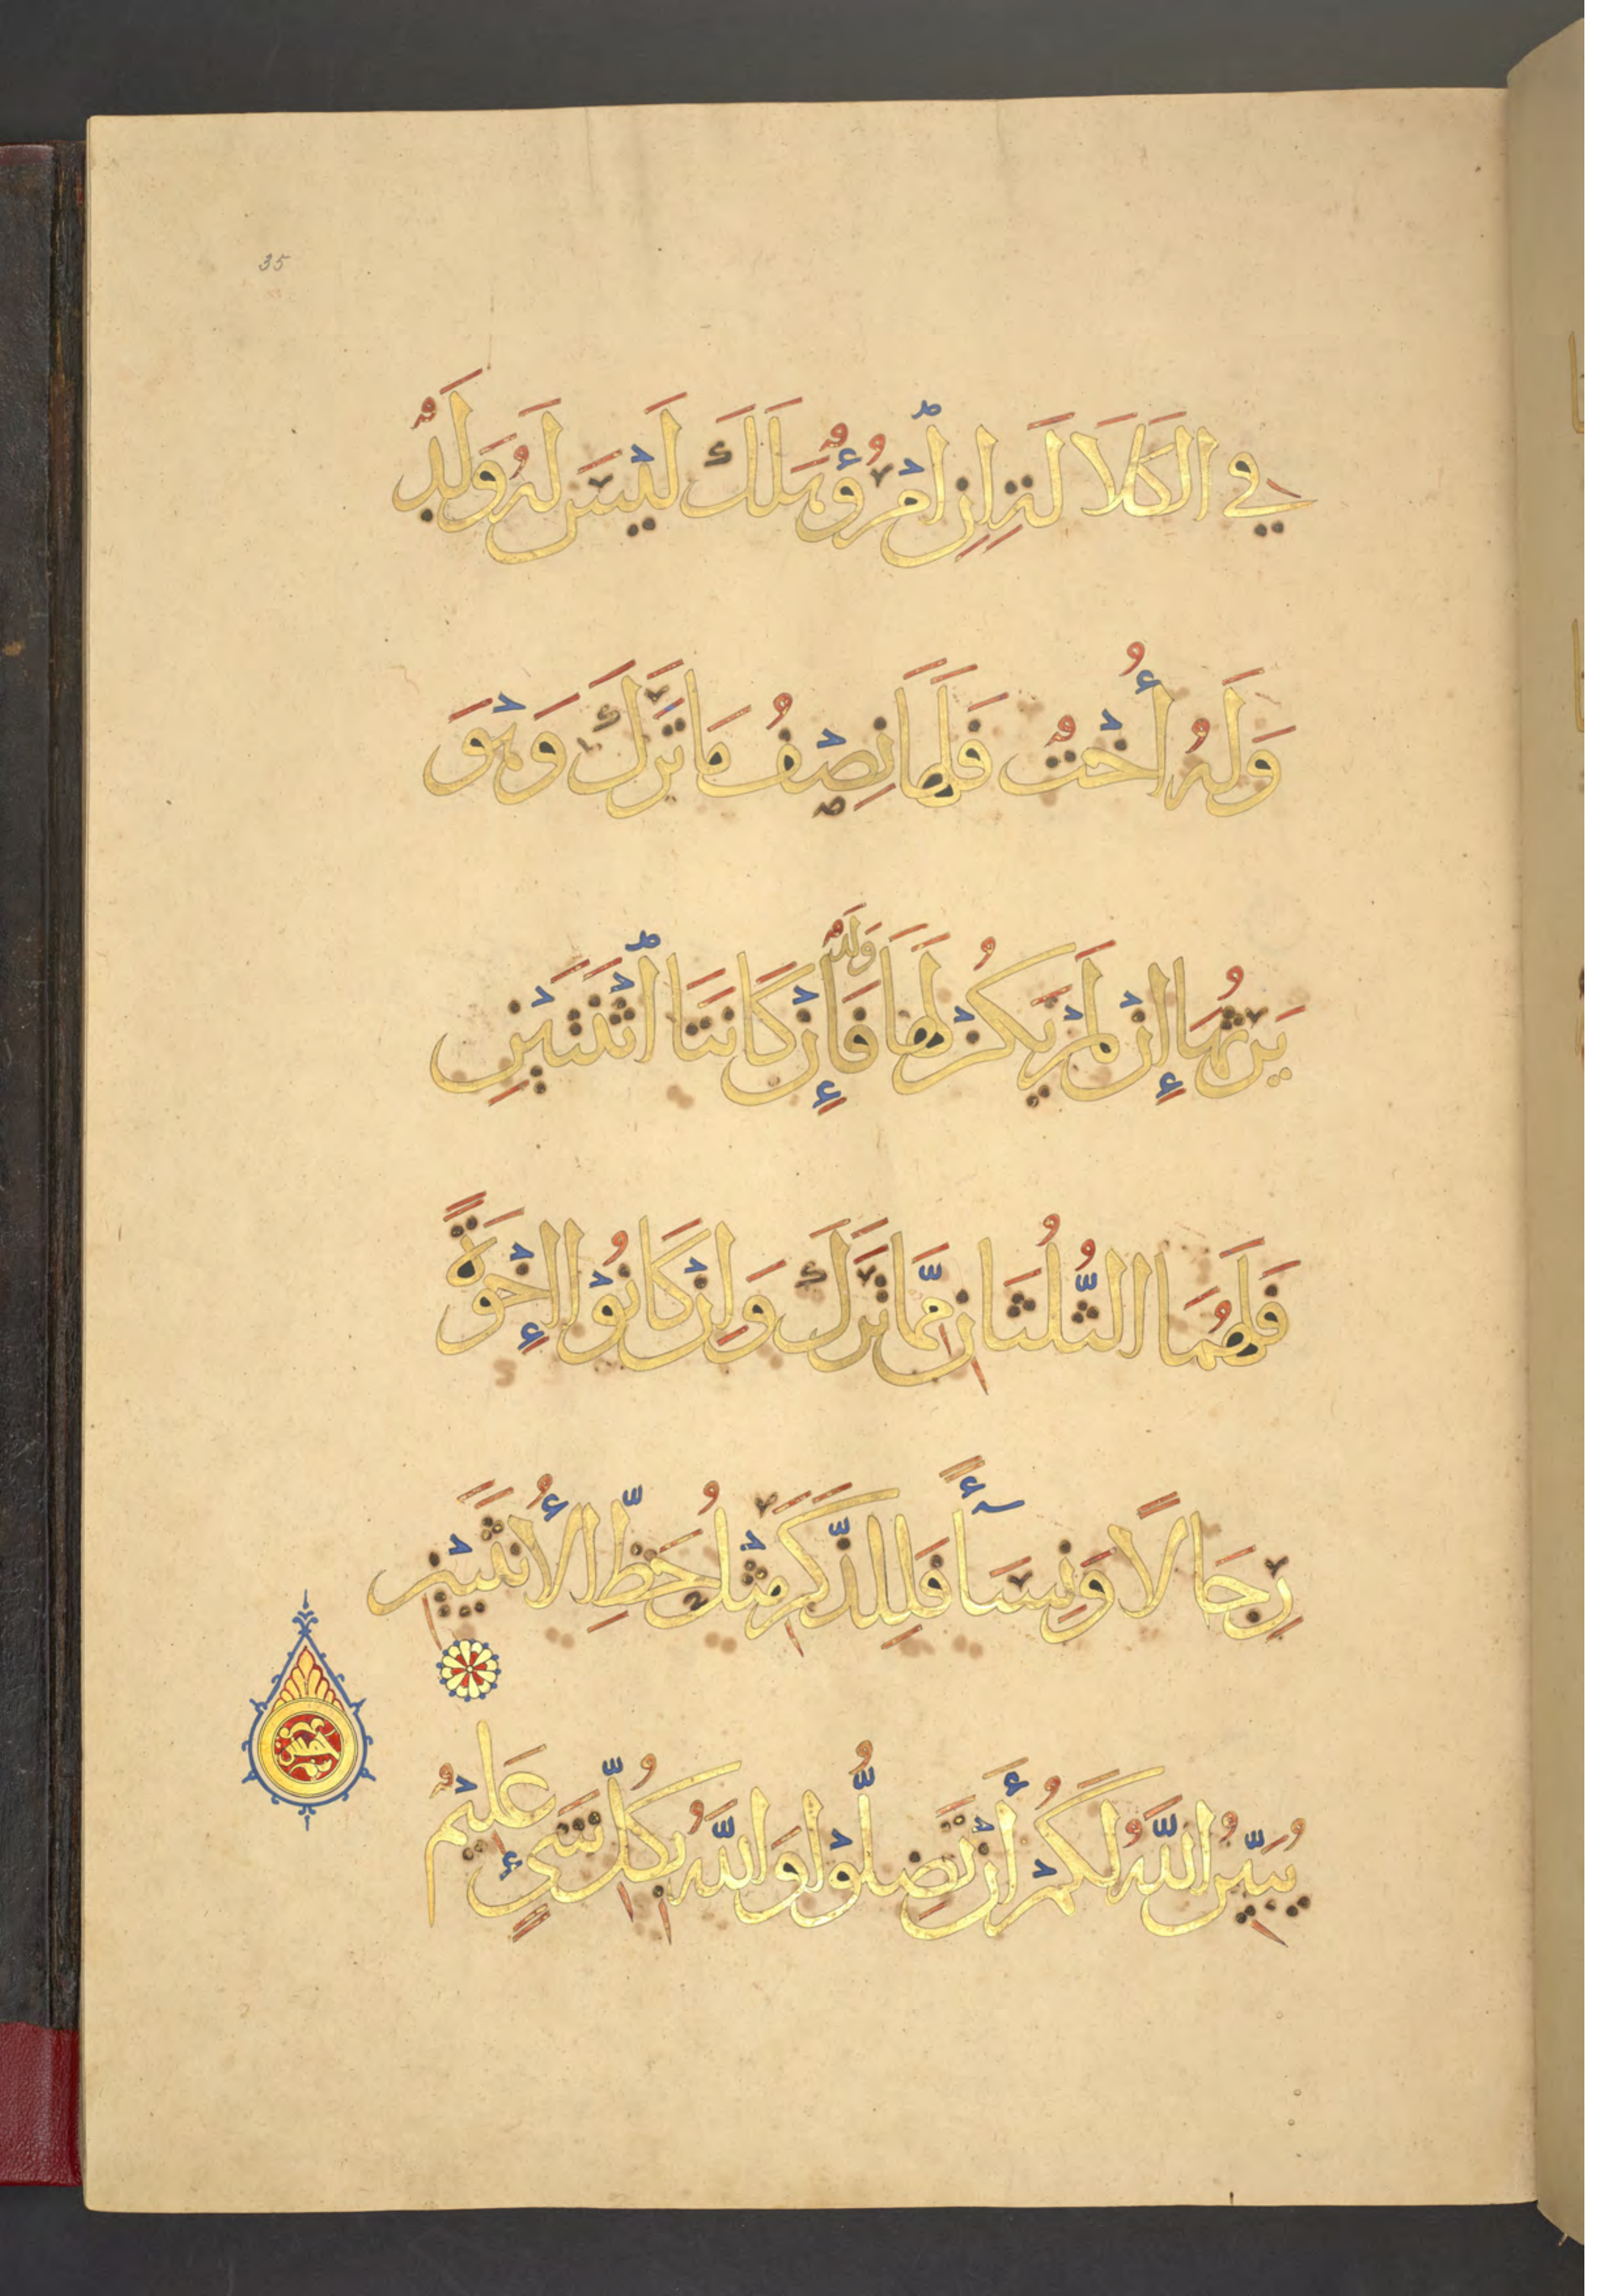 35
فِي الكَلَالَةِ إِنِ امْرُؤٌ هَلَكَ لَيْسَ لَهُ وَلَدٌ
وَلَهُ أُخْتٌ فَلَهَا نِصْفُ مَا تَرَكَ وَهْوَ
يَرِثُهَا إِنْ لَمْ يَكُنْ لَهَا وَلَدٌ فَإِنْ كَانَتَا اثْنَتَيْنِ
فَلَهُمَا الثُّلُثَانِ مِمَّا تَرَكَ وَإِنْ كَانُوْا إِخْوَةً
رِجَالًا وَنِسَآءً فَلِلذَّكَرِ مِثْلُ حَظِّ الأُنثَيَيْنِ
يُبَيِّنُ اللَّهُ لَكُمْ أَنْ تَضِلُّوْا وَاللَّهُ بِكُلِّ شَيءٍ عَلِيْمٌ